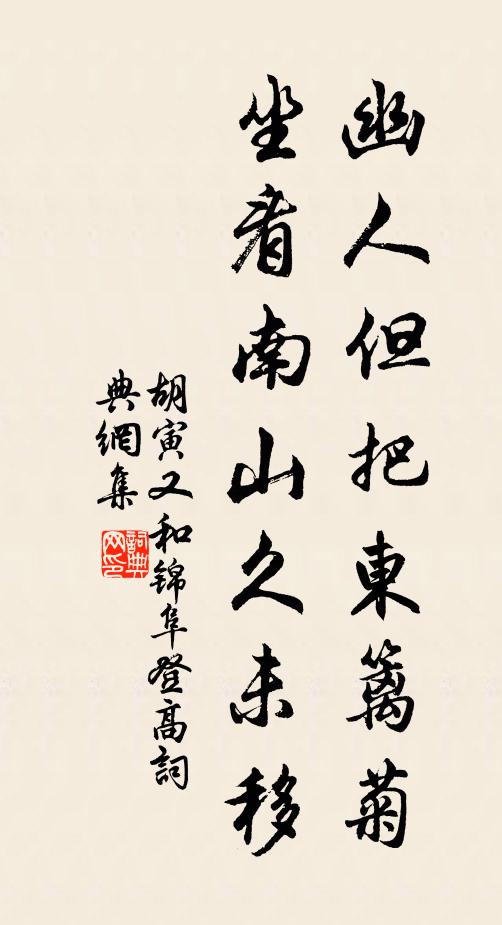 幽人但把東篱菊
坐看南山久未移
胡寅又和锦阜登高詞
典網集
詞典网印